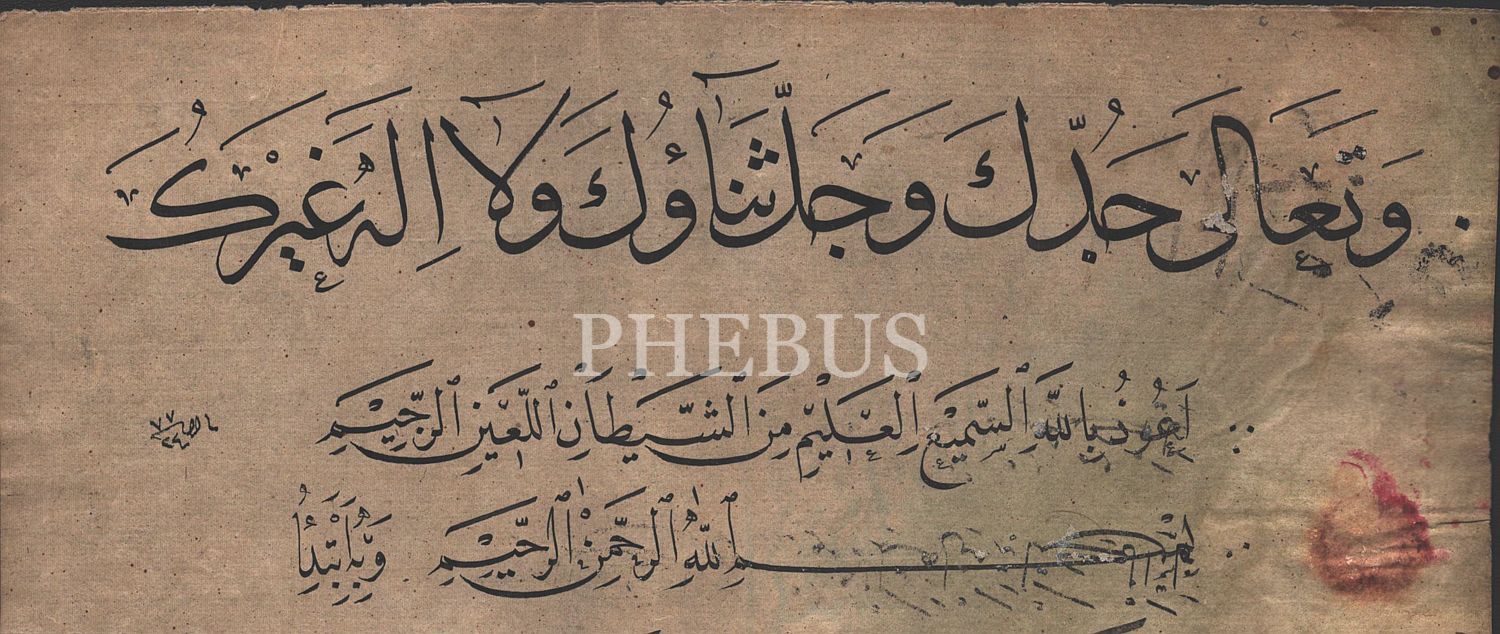 وَتَعَالَى جَدُّكَ وَجَلَّ ثَنَاؤُكَ وَلَا اِلٰهَ غَيْرُكَ
PHEBUS
اَعُوذُ بِاللّٰهِ السَّمِيْعِ الْعَلِيْمِ مِنَ الشَّيْطَانِ اللَّعِيْنِ الرَّجِيْمِ
بِسْمِ اللّٰهِ الرَّحْمٰنِ الرَّحِيْمِ وَبِهِ